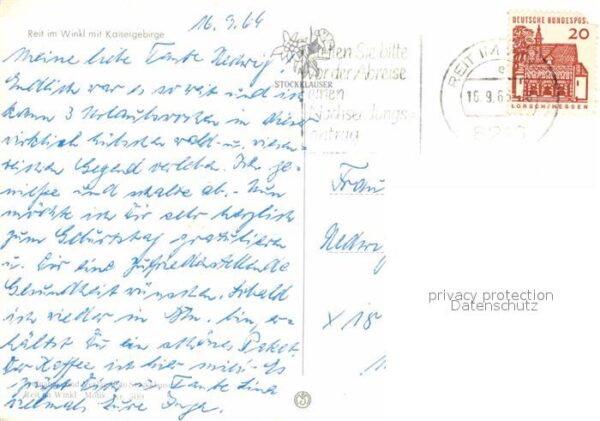 16.9.64
Reit im Winkl mit Kaisergebirge
Meine liebe Tante Hedwig!
Endlich war es so weit und ich
kann 3 Urlaubswochen in dieser
wirklich hübschen wald- u. wiesen-
reichen Gegend verleben. Ich ge-
nieße und schalte ab. - Nun
möchte ich Dir sehr herzlich
zum Geburtstag gratulieren
u. Dir eine zufriedenstellende
Gesundheit wünschen. Sobald
ich wieder in bin, er-
hältst Du ein schönes Paket.
Der Kaffee ist hier Es
grüßt Dich Tante Lina
vielmals Eure Inge.
Reit im Winkl
STOCKKLAUSER
Sie bitte
vor der Abreise
einen
Nachsendungs-
antrag
REIT IM
16.9.65
DEUTSCHE BUNDESPOST
20
LORSCH/HESSEN
Frau
Hedwig
X 18
privacy protection
Datenschutz